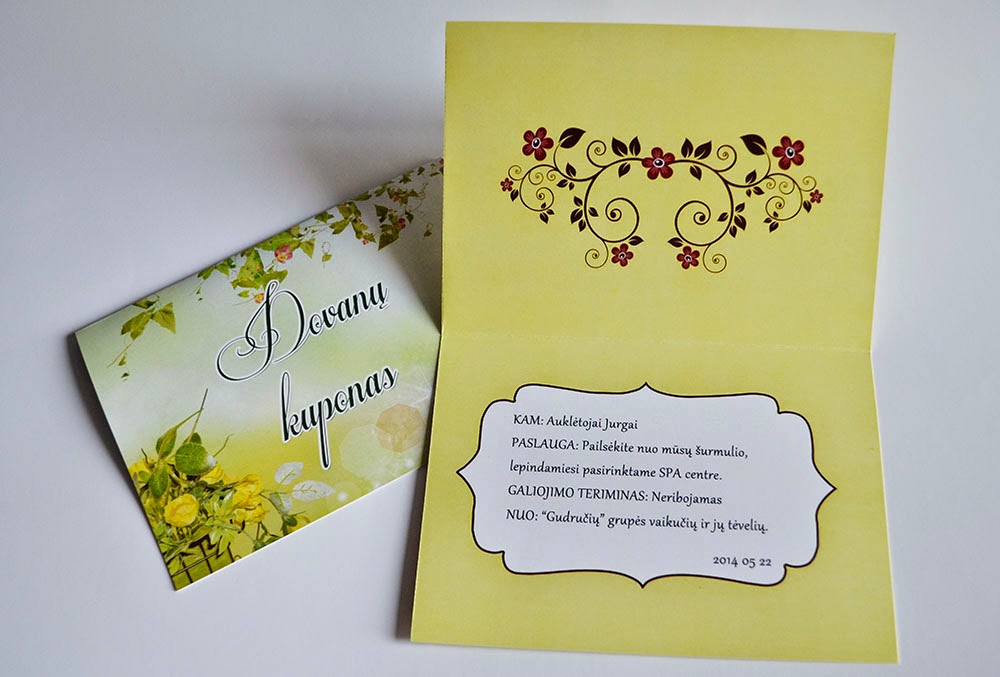 Dovanų
kuponas
KAM: Auklėtojai Jurgai
PASLAUGA: Pailsėkite nuo mūsų šurmulio,
lepindamiesi pasirinktame SPA centre.
GALIOJIMO TERIMINAS: Neribojamas
NUO: “Gudručių” grupės vaikučių ir jų tėvelių.
2014 05 22